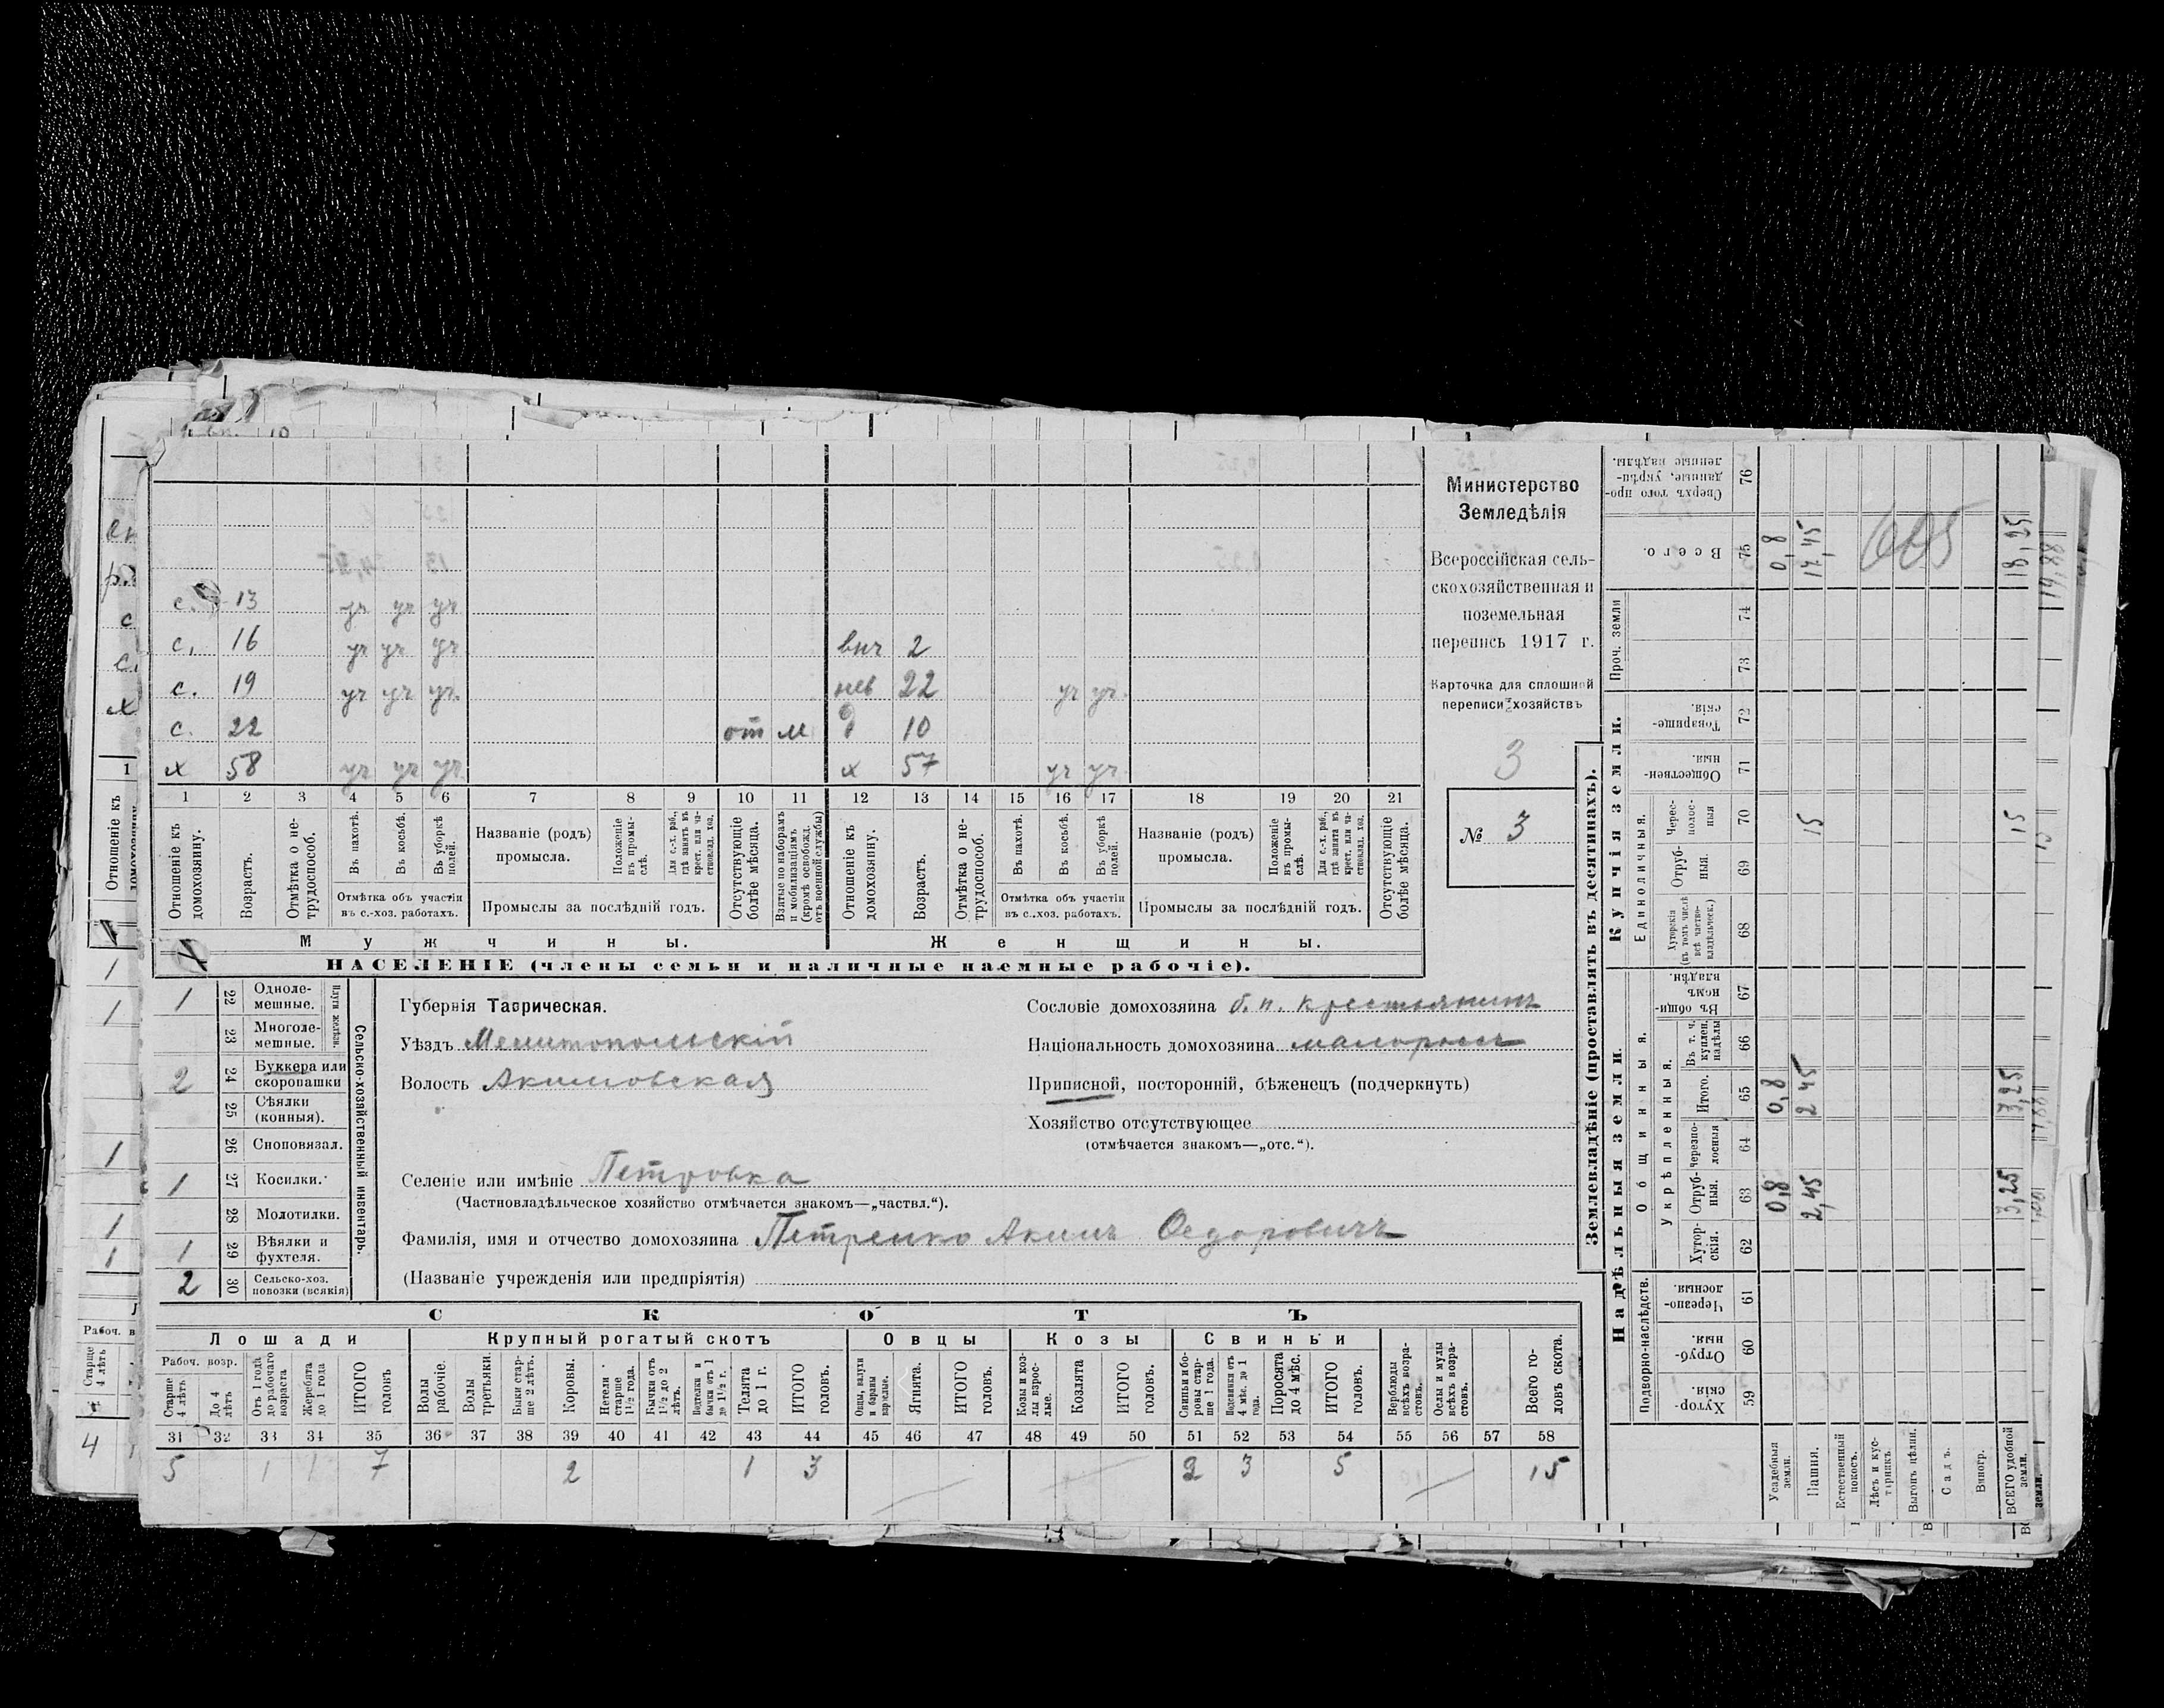 с. 13 уч уч уч
с. 16 уч уч уч внч 2
с. 19 уч уч уч нев 22 уч уч
с. 22 от м д 10
х 58 уч уч уч х 57 уч уч
1 2 3 4 5 6 7 8 9 10 11 12 13 14 15 16 17 18 19 20 21
Отношеніе къ домохозяину.
Возрастъ.
Отмѣтка о не-трудоспособ.
Въ пахотѣ.
Въ косьбѣ.
Въ уборкѣ полей.
Отмѣтка объ участіи въ с.-хоз. работахъ.
Названіе (родъ) промысла.
Положеніе въ промы-слѣ.
Для с.-х. раб., гдѣ занятъ въ крест. или ча-стновлад. хоз.
Промыслы за послѣдній годъ.
Отсутствующіе болѣе мѣсяца.
Взятые по наборамъ и мобилизаціямъ (кромѣ освобожд. отъ военной службы)
Отношеніе къ домохозяину.
Возрастъ.
Отмѣтка о не-трудоспособ.
Въ пахотѣ.
Въ косьбѣ.
Въ уборкѣ полей.
Отмѣтка объ участіи въ с.-хоз. работахъ.
Названіе (родъ) промысла.
Положеніе въ промы-слѣ.
Для с.-х. раб., гдѣ занята въ крест. или ча-стновлад. хоз.
Промыслы за послѣдній годъ.
Отсутствующіе болѣе мѣсяца.
Мужчины. Женщины.
НАСЕЛЕНІЕ (члены семьи и наличные наемные рабочіе).
Министерство
Земледѣлія
Всероссійская сель-
скохозяйственная и
поземельная
перепись 1917 г.
Карточка для сплошной
переписи хозяйствъ
3
№ 3
1 22 Одноле-мешные.
Плуги желѣзн.
23 Многоле-мешные.
2 24 Буккера или скоропашки
25 Сѣялки (конныя).
26 Сноповязал.
1 27 Косилки.
28 Молотилки.
1 29 Вѣялки и фухтеля.
2 30 Сельско-хоз. повозки (всякія)
Сельско-хозяйственный инвентарь.
Губернія Таврическая.
Уѣздъ Мелитопольскій
Волость Акимовская
Селеніе или имѣніе Петровка
(Частновладѣльческое хозяйство отмѣчается знакомъ—„частвл.“).
Фамилія, имя и отчество домохозяина Петренко Акимъ Федоровичъ
(Названіе учрежденія или предпріятія)
Сословіе домохозяина б. п. крестьянинъ
Національность домохозяина малороссъ
Приписной, посторонній, бѣженецъ (подчеркнуть)
Хозяйство отсутствующее
(отмѣчается знакомъ—„отс.“).
СКОТЪ
Лошади Крупный рогатый скотъ Овцы Козы Свиньи
Рабоч. возр.
Старше 4 лѣтъ
До 4 лѣтъ
Отъ 1 года до рабочаго возраста
Жеребята до 1 года
ИТОГО головъ
Волы рабочіе.
Волы третьяки.
Быки стар-ше 2 лѣтъ.
Коровы.
Нетели старше 1½ года.
Бычки отъ 1½ до 2 лѣтъ.
Подтелки и бычки отъ 1 до 1½ г.
Телята до 1 г.
ИТОГО головъ.
Овцы, валухи и бараны взрослые.
Ягнята.
ИТОГО головъ.
Козы и коз-лы взрос-лые.
Козлята
ИТОГО головъ.
Свиньи и бо-ровы стар-ше 1 года.
Подсвинки отъ 4 мѣс. до 1 года.
Поросята до 4 мѣс.
ИТОГО головъ.
Верблюды всѣхъ возра-стовъ.
Ослы и мулы всѣхъ возра-стовъ.
Всего го-ловъ скота.
31 32 33 34 35 36 37 38 39 40 41 42 43 44 45 46 47 48 49 50 51 52 53 54 55 56 57 58
5 1 1 7 2 1 3 2 3 5 15
Землевладѣніе (проставлять въ десятинахъ).
Надѣльныя земли. Купчія земли.
Подворно-наслѣдств.
Общинныя.
Укрѣпленныя.
Единоличныя.
Проч. земли
Хутор-скія. 59
Отруб-ныя. 60
Черезпо-лосныя. 61
Хутор-скія. 62
Отруб-ныя. 63
Черезпо-лосныя 64
Итого. 65
Въ т. ч. куплен. надѣлы 66
Въ общи-номъ владѣн. 67
Хуторскія (въ томъ числѣ всѣ частно-владѣльческ.) 68
Отруб-ныя. 69
Черес-полос-ныя 70
Обществен-ныя. 71
Товарище-скія. 72
73
74
Всего. 75
Сверхъ того про-данные, укрѣп-ленные надѣлы. 76
Усадебныя земли. 0,8 0,8 0,8
Пашня. 2,45 2 45 15 17,45
Естественный покосъ.
Лѣсъ и кус-тарникъ.
Выгонъ цѣлин.
Садъ.
Виногр.
ВСЕГО удобной земли. 3,25 3,25 15 18,25
19,88